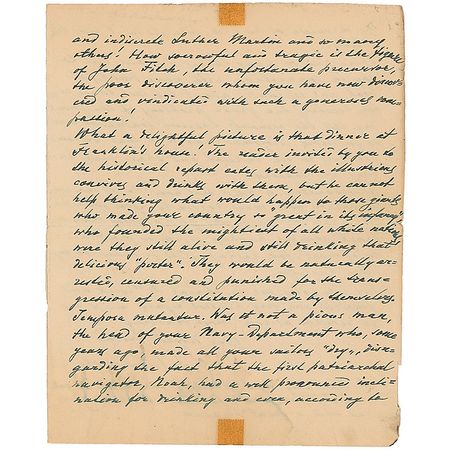 and indiscrete Luther Martin and so many
others! How sorrowful and tragic is the figure
of John Fitch, the unfortunate precursor,
the poor discoverer whom you have now discov=
ered and vindicated with such a generous com=
passion!
What a delightful picture is that dinner at
Franklin's house! The reader invited by you to
the historical repast eates with the illustrious
convives and drinks with them, but he cannot
help thinking what would happen to those giants
who made your country so "great in its infancy"
who founded the mightiest of all whole nations
were they still alive and still drinking that
delicious "porter". They would be naturally ar=
rested, censured and punished for the trans=
gression of a constitution made by themselves.
Tempora mutantur. Was it not a pious man,
the head of your Navy-Department who, some
years ago, made all your sailors "dry", disre=
garding the fact that the first patriarchal
navigator, Noah, had a well pronounced incli=
nation for drinking and even, according to